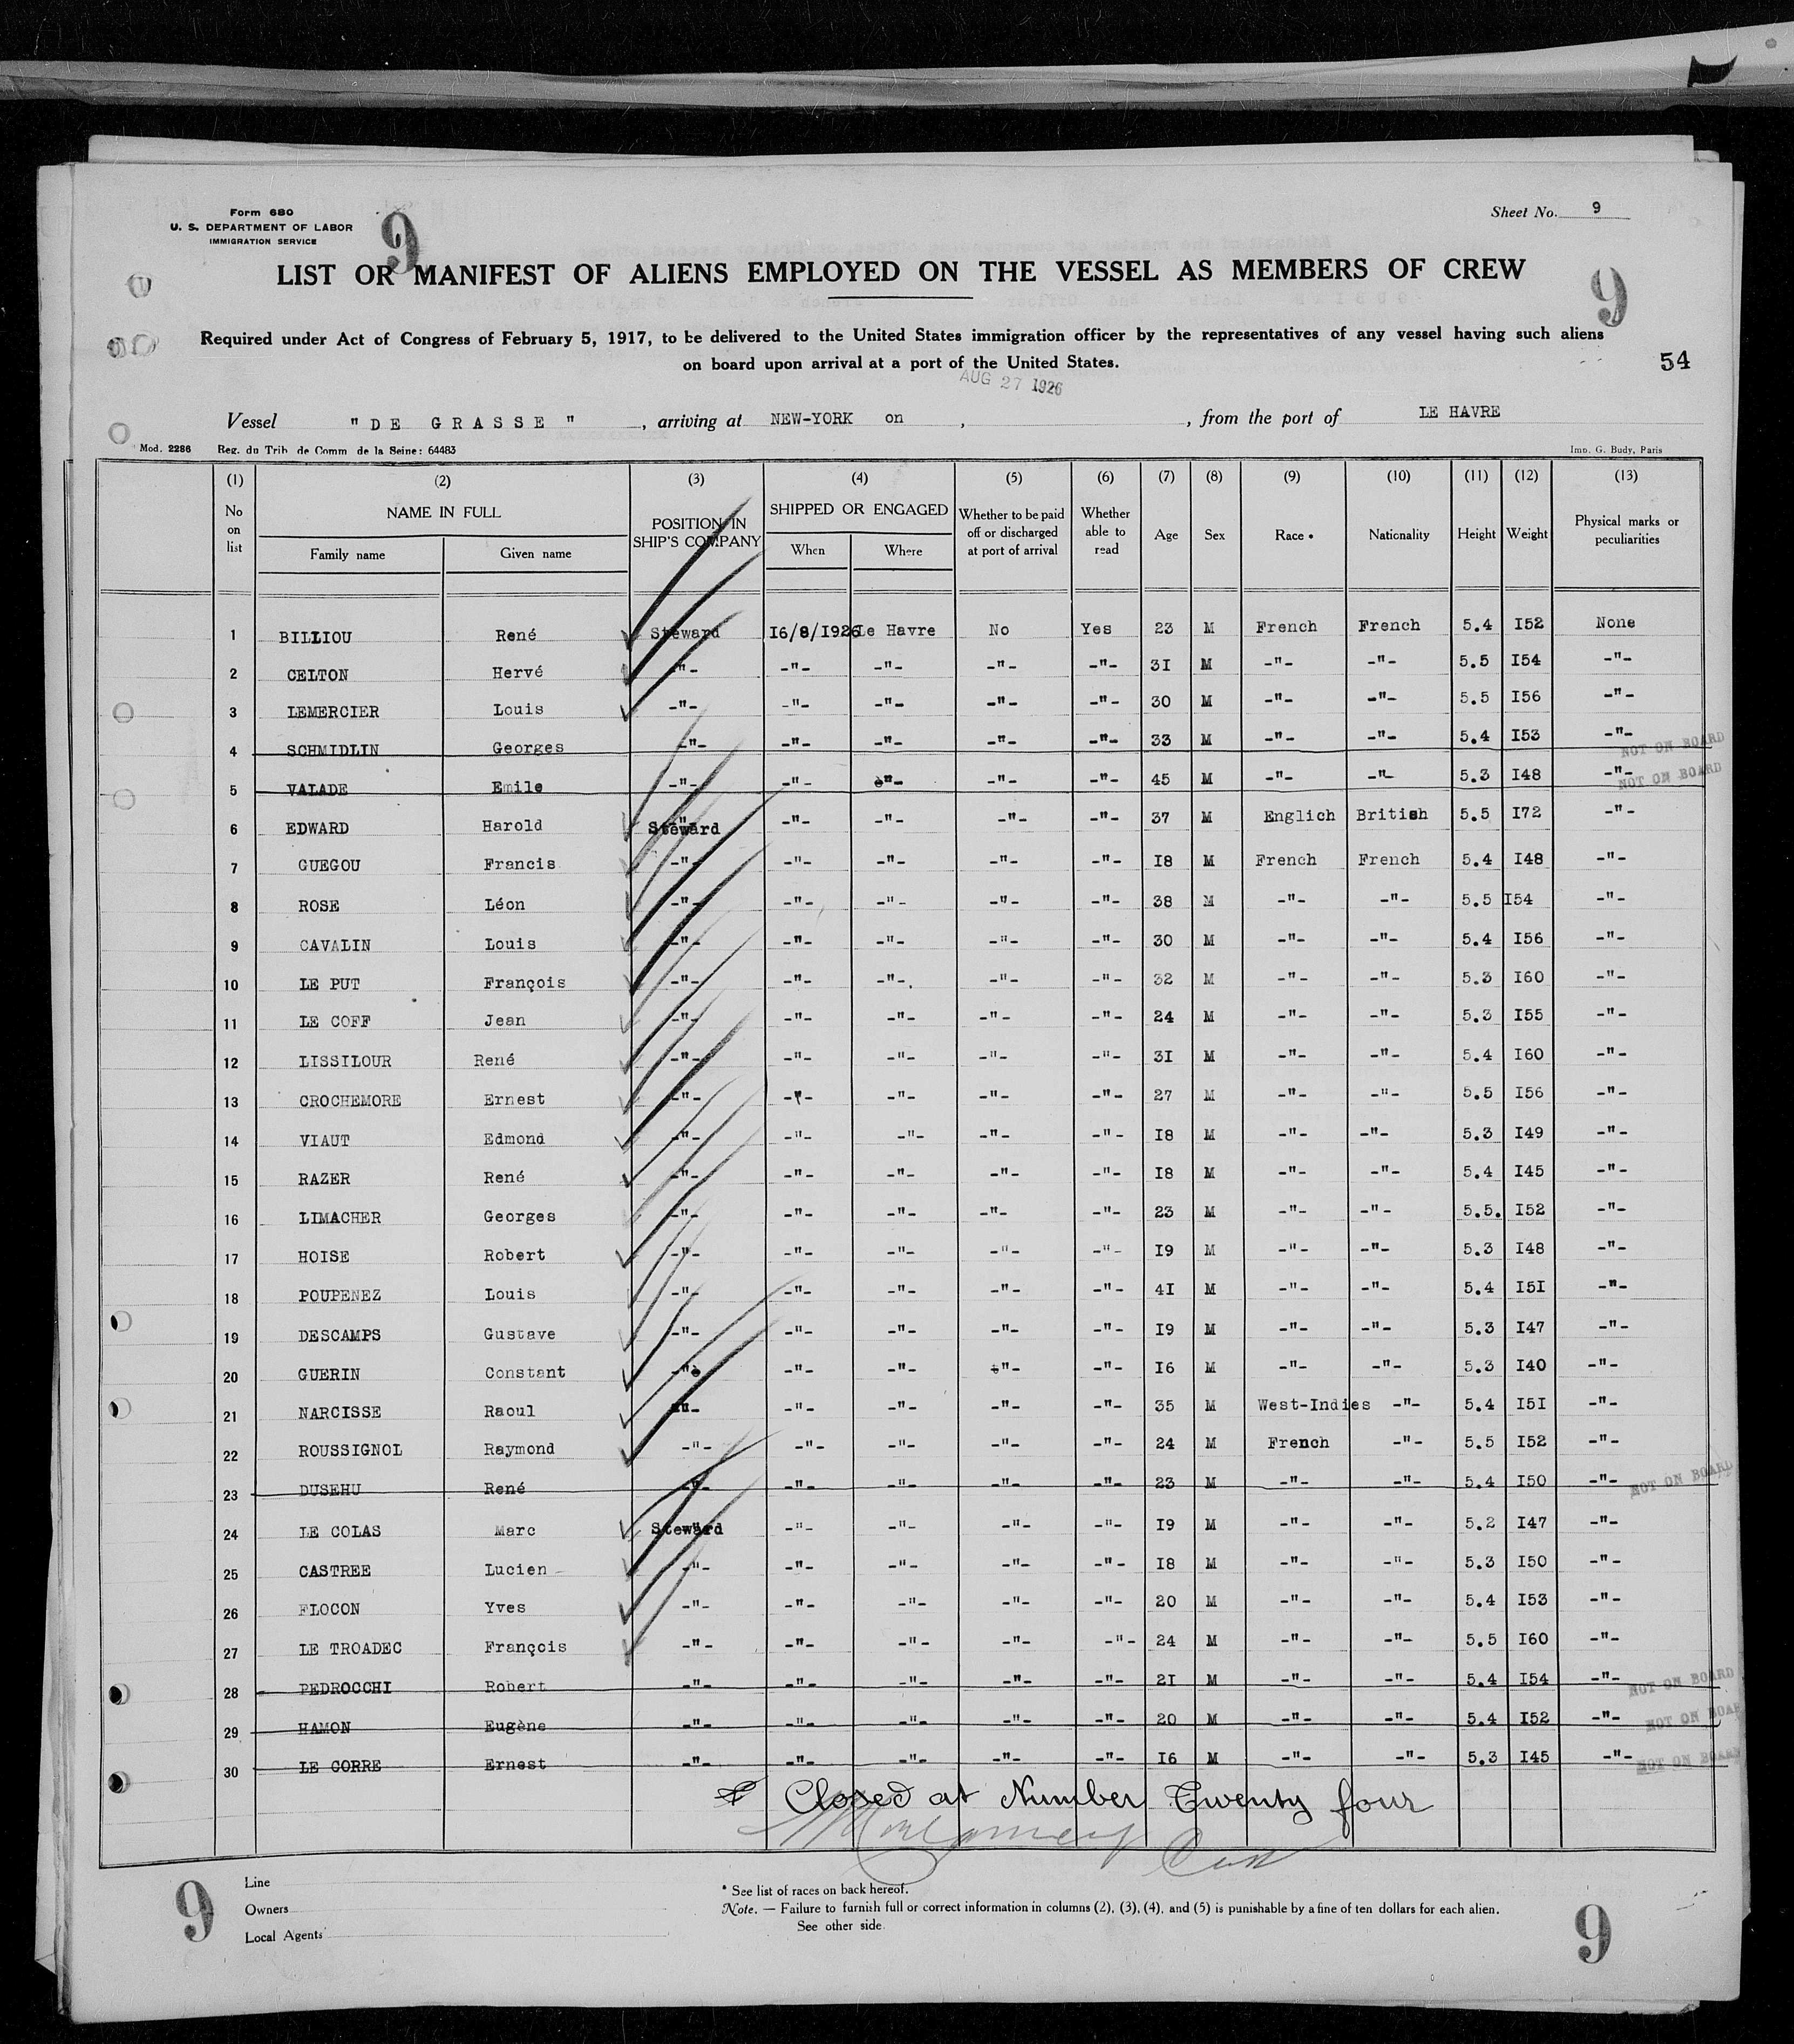 Form 680
U. S. DEPARTMENT OF LABOR
IMMIGRATION SERVICE
9
Sheet No. 9
LIST OR MANIFEST OF ALIENS EMPLOYED ON THE VESSEL AS MEMBERS OF CREW
9
Required under Act of Congress of February 5, 1917, to be delivered to the United States immigration officer by the representatives of any vessel having such aliens
on board upon arrival at a port of the United States.
54
AUG 27 1926
Vessel "DE GRASSE", arriving at NEW-YORK on , , from the port of LE HAVRE
Mod. 2286 Reg. du Trib de Comm de la Seine: 64483 Imp. G. Budy, Paris
(1) (2) (3) (4) (5) (6) (7) (8) (9) (10) (11) (12) (13)
No on list NAME IN FULL POSITION IN SHIP'S COMPANY SHIPPED OR ENGAGED Whether to be paid off or discharged at port of arrival Whether able to read Age Sex Race * Nationality Height Weight Physical marks or peculiarities
Family name Given name When Where
1 BILLIOU René Steward 16/8/1926 Le Havre No Yes 23 M French French 5.4 152 None
2 CELTON Hervé -"- -"- -"- -"- -"- 31 M -"- -"- 5.5 154 -"-
3 LEMERCIER Louis -"- -"- -"- -"- -"- 30 M -"- -"- 5.5 156 -"-
4 SCHMIDLIN Georges -"- -"- -"- -"- -"- 33 M -"- -"- 5.4 153 -"- NOT ON BOARD
5 VALADE Emile -"- -"- -"- -"- -"- 45 M -"- -"- 5.3 148 -"- NOT ON BOARD
6 EDWARD Harold Steward -"- -"- -"- -"- 37 M Englich British 5.5 172 -"-
7 GUEGOU Francis -"- -"- -"- -"- -"- 18 M French French 5.4 148 -"-
8 ROSE Léon -"- -"- -"- -"- -"- 38 M -"- -"- 5.5 154 -"-
9 CAVALIN Louis -"- -"- -"- -"- -"- 30 M -"- -"- 5.4 156 -"-
10 LE PUT François -"- -"- -"- -"- -"- 32 M -"- -"- 5.3 160 -"-
11 LE COFF Jean -"- -"- -"- -"- -"- 24 M -"- -"- 5.3 155 -"-
12 LISSILOUR René -"- -"- -"- -"- -"- 31 M -"- -"- 5.4 160 -"-
13 CROCHEMORE Ernest -"- -"- -"- -"- -"- 27 M -"- -"- 5.5 156 -"-
14 VIAUT Edmond -"- -"- -"- -"- -"- 18 M -"- -"- 5.3 149 -"-
15 RAZER René -"- -"- -"- -"- -"- 18 M -"- -"- 5.4 145 -"-
16 LIMACHER Georges -"- -"- -"- -"- -"- 23 M -"- -"- 5.5. 152 -"-
17 HOISE Robert -"- -"- -"- -"- -"- 19 M -"- -"- 5.3 148 -"-
18 POUPENEZ Louis -"- -"- -"- -"- -"- 41 M -"- -"- 5.4 151 -"-
19 DESCAMPS Gustave -"- -"- -"- -"- -"- 19 M -"- -"- 5.3 147 -"-
20 GUERIN Constant -"- -"- -"- -"- -"- 16 M -"- -"- 5.3 140 -"-
21 NARCISSE Raoul -"- -"- -"- -"- -"- 35 M West-Indies -"- 5.4 151 -"-
22 ROUSSIGNOL Raymond -"- -"- -"- -"- -"- 24 M French -"- 5.5 152 -"-
23 DUSEHU René -"- -"- -"- -"- -"- 23 M -"- -"- 5.4 150 -"- NOT ON BOARD
24 LE COLAS Marc Steward -"- -"- -"- -"- 19 M -"- -"- 5.2 147 -"-
25 CASTREE Lucien -"- -"- -"- -"- -"- 18 M -"- -"- 5.3 150 -"-
26 FLOCON Yves -"- -"- -"- -"- -"- 20 M -"- -"- 5.4 153 -"-
27 LE TROADEC François -"- -"- -"- -"- -"- 24 M -"- -"- 5.5 160 -"-
28 PEDROCCHI Robert -"- -"- -"- -"- -"- 21 M -"- -"- 5.4 154 -"- NOT ON BOARD
29 HAMON Eugène -"- -"- -"- -"- -"- 20 M -"- -"- 5.4 152 -"- NOT ON BOARD
30 LE CORRE Ernest -"- -"- -"- -"- -"- 16 M -"- -"- 5.3 145 -"- NOT ON BOARD
Closed at Number Twenty four
Line
Owners
Local Agents
* See list of races on back hereof.
Note. — Failure to furnish full or correct information in columns (2), (3), (4), and (5) is punishable by a fine of ten dollars for each alien.
See other side
9
9